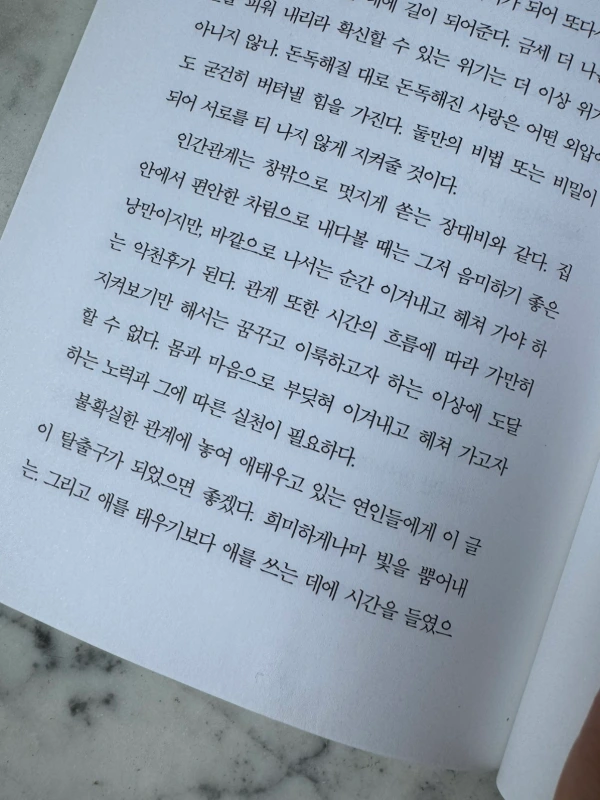 되어 또다시
길이 되어준다. 금세 더 나
피워 내리라 확신할 수 있는 위기는 더 이상 위기
아니지 않나. 돈독해질 대로 돈독해진 사랑은 어떤 외압에
도 굳건히 버텨낼 힘을 가진다. 둘만의 비법 또는 비밀이
되어 서로를 티 나지 않게 지켜줄 것이다.
인간관계는 창밖으로 멋지게 쏟는 장대비와 같다. 집
안에서 편안한 차림으로 내다볼 때는 그저 음미하기 좋은
낭만이지만, 바깥으로 나서는 순간 이겨내고 헤쳐 가야 하
는 악천후가 된다. 관계 또한 시간의 흐름에 따라 가만히
지켜보기만 해서는 꿈꾸고 이룩하고자 하는 이상에 도달
할 수 없다. 몸과 마음으로 부딪혀 이겨내고 헤쳐 가고자
하는 노력과 그에 따른 실천이 필요하다.
불확실한 관계에 놓여 애태우고 있는 연인들에게 이 글
이 탈출구가 되었으면 좋겠다. 희미하게나마 빛을 뿜어내
는. 그리고 애를 태우기보다 애를 쓰는 데에 시간을 들였으